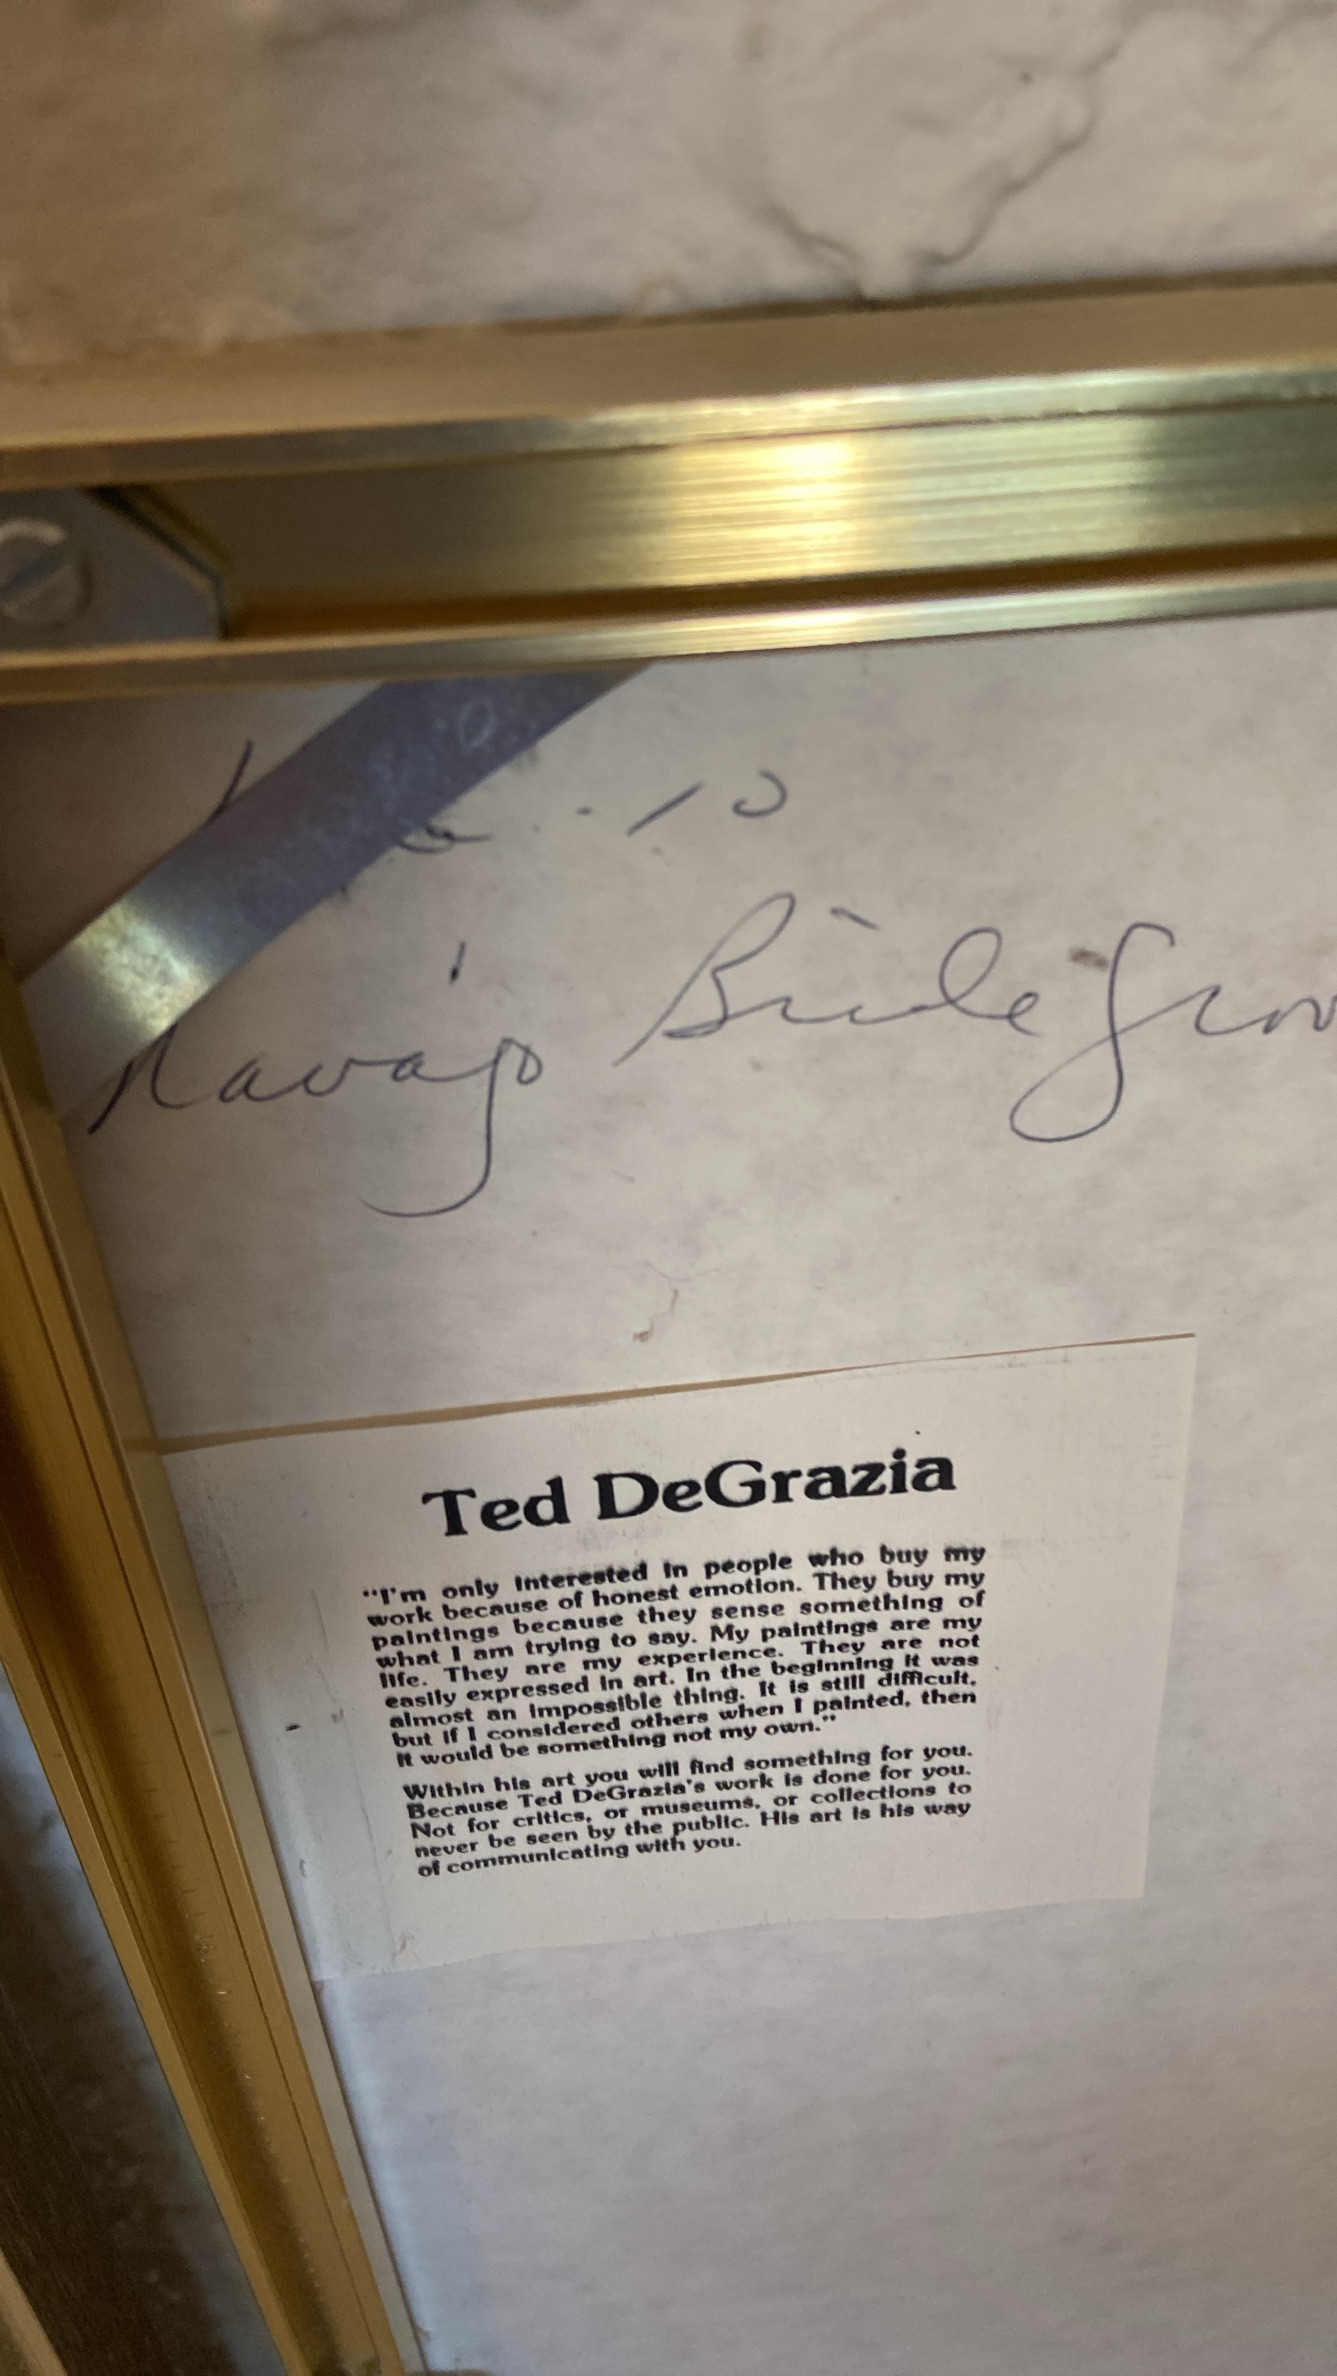 10
Navajo Bridegroo
Ted DeGrazia
"I'm only interested in people who buy my
work because of honest emotion. They buy my
paintings because they sense something of
what I am trying to say. My paintings are my
life. They are my experience. They are not
easily expressed in art. In the beginning it was
almost an impossible thing. It is still difficult,
but if I considered others when I painted, then
it would be something not my own."
Within his art you will find something for you.
Because Ted DeGrazia's work is done for you.
Not for critics, or museums, or collections to
never be seen by the public. His art is his way
of communicating with you.